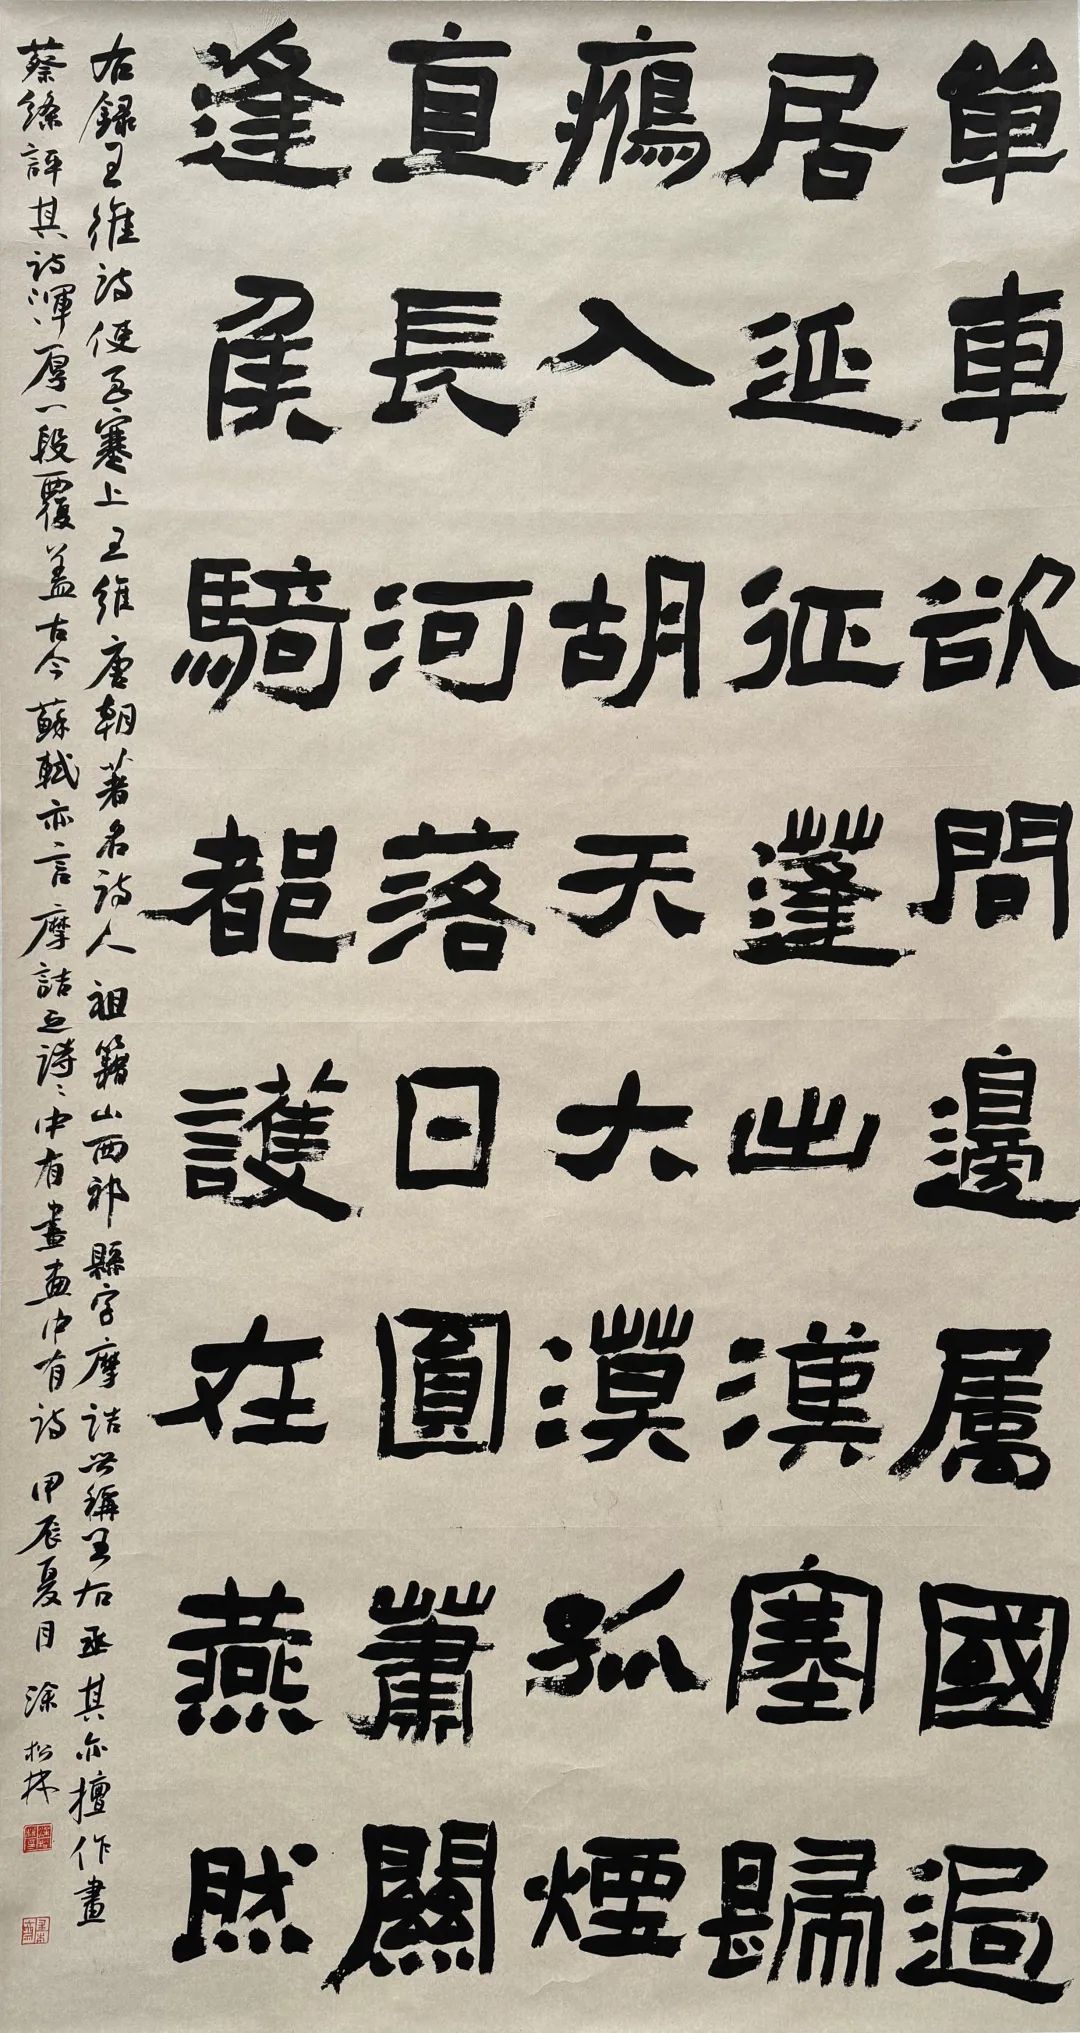 單車欲問邊屬國過
居延征蓬出漢塞歸
鴈入胡天大漠孤煙
直長河落日圓蕭關
逢侯騎都護在燕然
右録王維詩使至塞上王維唐朝著名詩人祖籍山西祁縣字摩詰世稱王右丞其亦擅作畫
蔡絛評其詩渾厚一段覆盖古今蘇軾亦言摩詰之詩詩中有畫畫中有詩甲辰夏月涂松林